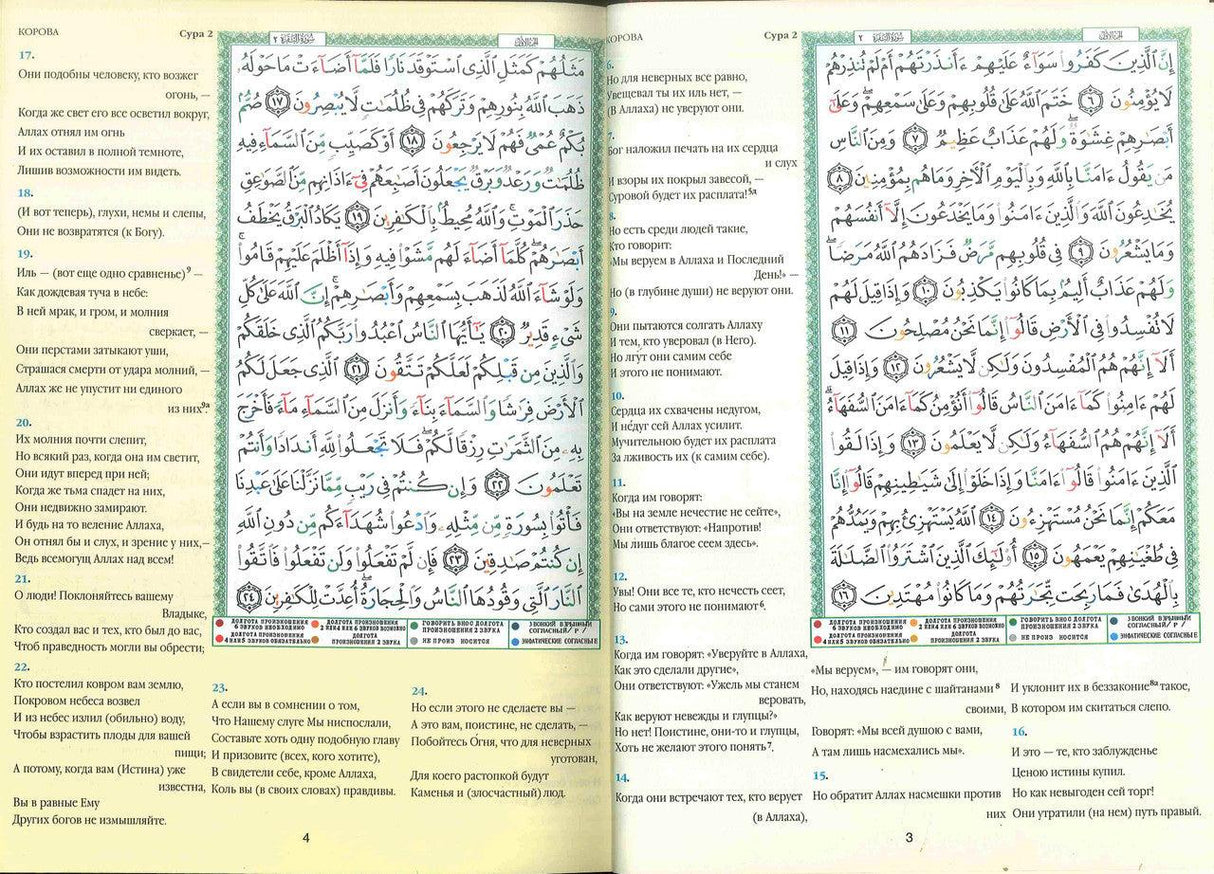 КОРОВА
Сура 2
سُورَةُ البَقَرَةِ ٢
الجزء الأول
إِنَّ ٱلَّذِينَ كَفَرُوا۟ سَوَآءٌ عَلَيْهِمْ ءَأَنذَرْتَهُمْ أَمْ لَمْ تُنذِرْهُمْ
لَا يُؤْمِنُونَ ٦ خَتَمَ ٱللَّهُ عَلَىٰ قُلُوبِهِمْ وَعَلَىٰ سَمْعِهِمْ ۖ وَعَلَىٰٓ
أَبْصَـٰرِهِمْ غِشَـٰوَةٌ ۖ وَلَهُمْ عَذَابٌ عَظِيمٌ ٧ وَمِنَ ٱلنَّاسِ
مَن يَقُولُ ءَامَنَّا بِٱللَّهِ وَبِٱلْيَوْمِ ٱلْـَٔاخِرِ وَمَا هُم بِمُؤْمِنِينَ ٨
يُخَـٰدِعُونَ ٱللَّهَ وَٱلَّذِينَ ءَامَنُوا۟ وَمَا يَخْدَعُونَ إِلَّآ أَنفُسَهُمْ
وَمَا يَشْعُرُونَ ٩ فِى قُلُوبِهِم مَّرَضٌ فَزَادَهُمُ ٱللَّهُ مَرَضًا ۖ
وَلَهُمْ عَذَابٌ أَلِيمٌۢ بِمَا كَانُوا۟ يَكْذِبُونَ ١٠ وَإِذَا قِيلَ لَهُمْ
لَا تُفْسِدُوا۟ فِى ٱلْأَرْضِ قَالُوٓا۟ إِنَّمَا نَحْنُ مُصْلِحُونَ ١١
أَلَآ إِنَّهُمْ هُمُ ٱلْمُفْسِدُونَ وَلَـٰكِن لَّا يَشْعُرُونَ ١٢ وَإِذَا قِيلَ
لَهُمْ ءَامِنُوا۟ كَمَآ ءَامَنَ ٱلنَّاسُ قَالُوٓا۟ أَنُؤْمِنُ كَمَآ ءَامَنَ ٱلسُّفَهَآءُ ۗ
أَلَآ إِنَّهُمْ هُمُ ٱلسُّفَهَآءُ وَلَـٰكِن لَّا يَعْلَمُونَ ١٣ وَإِذَا لَقُوا۟
ٱلَّذِينَ ءَامَنُوا۟ قَالُوٓا۟ ءَامَنَّا وَإِذَا خَلَوْا۟ إِلَىٰ شَيَـٰطِينِهِمْ قَالُوٓا۟ إِنَّا
مَعَكُمْ إِنَّمَا نَحْنُ مُسْتَهْزِءُونَ ١٤ ٱللَّهُ يَسْتَهْزِئُ بِهِمْ وَيَمُدُّهُمْ
فِى طُغْيَـٰنِهِمْ يَعْمَهُونَ ١٥ أُو۟لَـٰٓئِكَ ٱلَّذِينَ ٱشْتَرَوُا۟ ٱلضَّلَـٰلَةَ
بِٱلْهُدَىٰ فَمَا رَبِحَت تِّجَـٰرَتُهُمْ وَمَا كَانُوا۟ مُهْتَدِينَ ١٦
6.
Но для неверных все равно,
Увещевал ты их иль нет, —
(В Аллаха) не уверуют они.
7.
Бог наложил печать на их сердца
и слух
И взоры их покрыл завесой, —
Суровой будет их расплата!⁵ᵃ
8.
Но есть среди людей такие,
Кто говорит:
«Мы веруем в Аллаха и Последний
День!» —
Но (в глубине души) не веруют они.
9.
Они пытаются солгать Аллаху
И тем, кто уверовал (в Него).
Но лгут они самим себе
И этого не понимают.
10.
Сердца их схвачены недугом,
И недуг сей Аллах усилит.
Мучительною будет их расплата
За лживость их (к самим себе).
11.
Когда им говорят:
«Вы на земле нечестие не сейте»,
Они ответствуют: «Напротив!
Мы лишь благое сеем здесь».
12.
Увы! Они все те, кто нечесть сеет,
Но сами этого не понимают⁶.
13.
Когда им говорят: «Уверуйте в Аллаха,
Как это сделали другие»,
Они ответствуют: «Ужель мы станем
веровать,
Как веруют невежды и глупцы?»
Но нет! Поистине, они-то и глупцы,
Хоть не желают этого понять⁷.
14.
Когда они встречают тех, кто верует
(в Аллаха),
ДОЛГОТА ПРОИЗНОШЕНИЯ 6 ЗВУКОВ НЕОБХОДИМО
ДОЛГОТА ПРОИЗНОШЕНИЯ 2 ИЛИ 4 ИЛИ 6 ЗВУКОВ ВОЗМОЖНО
ГОВОРИТЬ В НОС ДОЛГОТА ПРОИЗНОШЕНИЯ 2 ЗВУКА
ЗВОНКИЙ ВЗРЫВНЫЙ СОГЛАСНЫЙ/ Р /
ДОЛГОТА ПРОИЗНОШЕНИЯ 4 ИЛИ 5 ЗВУКОВ ОБЯЗАТЕЛЬНО
ДОЛГОТА ПРОИЗНОШЕНИЯ 2 ЗВУКА
НЕ ПРОИЗНОСИТСЯ
ЭМФАТИЧЕСКИЕ СОГЛАСНЫЕ
«Мы веруем», — им говорят они,
Но, находясь наедине с шайтанами⁸
своими,
Говорят: «Мы всей душою с вами,
А там лишь насмехались мы».
15.
Но обратит Аллах насмешки против
них
И уклонит их в беззаконие⁸ᵃ такое,
В котором им скитаться слепо.
16.
И это — те, кто заблужденье
Ценою истины купил.
Но как невыгоден сей торг!
Они утратили (на нем) путь правый.
3
КОРОВА
Сура 2
سُورَةُ البَقَرَةِ ٢
الجزء الأول
مَثَلُهُمْ كَمَثَلِ ٱلَّذِى ٱسْتَوْقَدَ نَارًا فَلَمَّآ أَضَآءَتْ مَا حَوْلَهُۥ
ذَهَبَ ٱللَّهُ بِنُورِهِمْ وَتَرَكَهُمْ فِى ظُلُمَـٰتٍ لَّا يُبْصِرُونَ ١٧ صُمٌّۢ
بُكْمٌ عُمْىٌ فَهُمْ لَا يَرْجِعُونَ ١٨ أَوْ كَصَيِّبٍ مِّنَ ٱلسَّمَآءِ فِيهِ
ظُلُمَـٰتٌ وَرَعْدٌ وَبَرْقٌ يَجْعَلُونَ أَصَـٰبِعَهُمْ فِىٓ ءَاذَانِهِم مِّنَ ٱلصَّوَٰعِقِ
حَذَرَ ٱلْمَوْتِ ۚ وَٱللَّهُ مُحِيطٌۢ بِٱلْكَـٰفِرِينَ ١٩ يَكَادُ ٱلْبَرْقُ يَخْطَفُ
أَبْصَـٰرَهُمْ ۖ كُلَّمَآ أَضَآءَ لَهُم مَّشَوْا۟ فِيهِ وَإِذَآ أَظْلَمَ عَلَيْهِمْ قَامُوا۟ ۚ
وَلَوْ شَآءَ ٱللَّهُ لَذَهَبَ بِسَمْعِهِمْ وَأَبْصَـٰرِهِمْ ۚ إِنَّ ٱللَّهَ عَلَىٰ كُلِّ
شَىْءٍ قَدِيرٌ ٢٠ يَـٰٓأَيُّهَا ٱلنَّاسُ ٱعْبُدُوا۟ رَبَّكُمُ ٱلَّذِى خَلَقَكُمْ
وَٱلَّذِينَ مِن قَبْلِكُمْ لَعَلَّكُمْ تَتَّقُونَ ٢١ ٱلَّذِى جَعَلَ لَكُمُ
ٱلْأَرْضَ فِرَٰشًا وَٱلسَّمَآءَ بِنَآءً وَأَنزَلَ مِنَ ٱلسَّمَآءِ مَآءً فَأَخْرَجَ
بِهِۦ مِنَ ٱلثَّمَرَٰتِ رِزْقًا لَّكُمْ ۖ فَلَا تَجْعَلُوا۟ لِلَّهِ أَندَادًا وَأَنتُمْ
تَعْلَمُونَ ٢٢ وَإِن كُنتُمْ فِى رَيْبٍ مِّمَّا نَزَّلْنَا عَلَىٰ عَبْدِنَا
فَأْتُوا۟ بِسُورَةٍ مِّن مِّثْلِهِۦ وَٱدْعُوا۟ شُهَدَآءَكُم مِّن دُونِ ٱللَّهِ
إِن كُنتُمْ صَـٰدِقِينَ ٢٣ فَإِن لَّمْ تَفْعَلُوا۟ وَلَن تَفْعَلُوا۟ فَٱتَّقُوا۟
ٱلنَّارَ ٱلَّتِى وَقُودُهَا ٱلنَّاسُ وَٱلْحِجَارَةُ ۖ أُعِدَّتْ لِلْكَـٰفِرِينَ ٢٤
17.
Они подобны человеку, кто возжег
огонь, —
Когда же свет его все осветил вокруг,
Аллах отнял им огнь
И их оставил в полной темноте,
Лишив возможности им видеть.
18.
(И вот теперь), глухи, немы и слепы,
Они не возвратятся (к Богу).
19.
Иль — (вот еще одно сравненье)⁹ —
Как дождевая туча в небе:
В ней мрак, и гром, и молния
сверкает, —
Они перстами затыкают уши,
Страшася смерти от удара молний, —
Аллах же не упустит ни единого
из них⁹ᵃ.
20.
Их молния почти слепит,
Но всякий раз, когда она им светит,
Они идут вперед при ней;
Когда же тьма спадет на них,
Они недвижно замирают.
И будь на то веление Аллаха,
Он отнял бы и слух, и зрение у них,—
Ведь всемогущ Аллах над всем!
21.
О люди! Поклоняйтесь вашему
Владыке,
Кто создал вас и тех, кто был до вас,
Чтоб праведность могли вы обрести;
22.
Кто постелил ковром вам землю,
Покровом небеса возвел
И из небес излил (обильно) воду,
Чтобы взрастить плоды для вашей
пищи;
А потому, когда вам (Истина) уже
известна,
Вы в равные Ему
Других богов не измышляйте.
ДОЛГОТА ПРОИЗНОШЕНИЯ 6 ЗВУКОВ НЕОБХОДИМО
ДОЛГОТА ПРОИЗНОШЕНИЯ 2 ИЛИ 4 ИЛИ 6 ЗВУКОВ ВОЗМОЖНО
ГОВОРИТЬ В НОС ДОЛГОТА ПРОИЗНОШЕНИЯ 2 ЗВУКА
ЗВОНКИЙ ВЗРЫВНЫЙ СОГЛАСНЫЙ/ Р /
ДОЛГОТА ПРОИЗНОШЕНИЯ 4 ИЛИ 5 ЗВУКОВ ОБЯЗАТЕЛЬНО
ДОЛГОТА ПРОИЗНОШЕНИЯ 2 ЗВУКА
НЕ ПРОИЗНОСИТСЯ
ЭМФАТИЧЕСКИЕ СОГЛАСНЫЕ
23.
А если вы в сомнении о том,
Что Нашему слуге Мы ниспослали,
Составьте хоть одну подобную главу
И призовите (всех, кого хотите),
В свидетели себе, кроме Аллаха,
Коль вы (в своих словах) правдивы.
24.
Но если этого не сделаете вы —
А это вам, поистине, не сделать, —
Побойтесь Огня, что для неверных
уготован,
Для коего растопкой будут
Каменья и (злосчастный) люд.
4